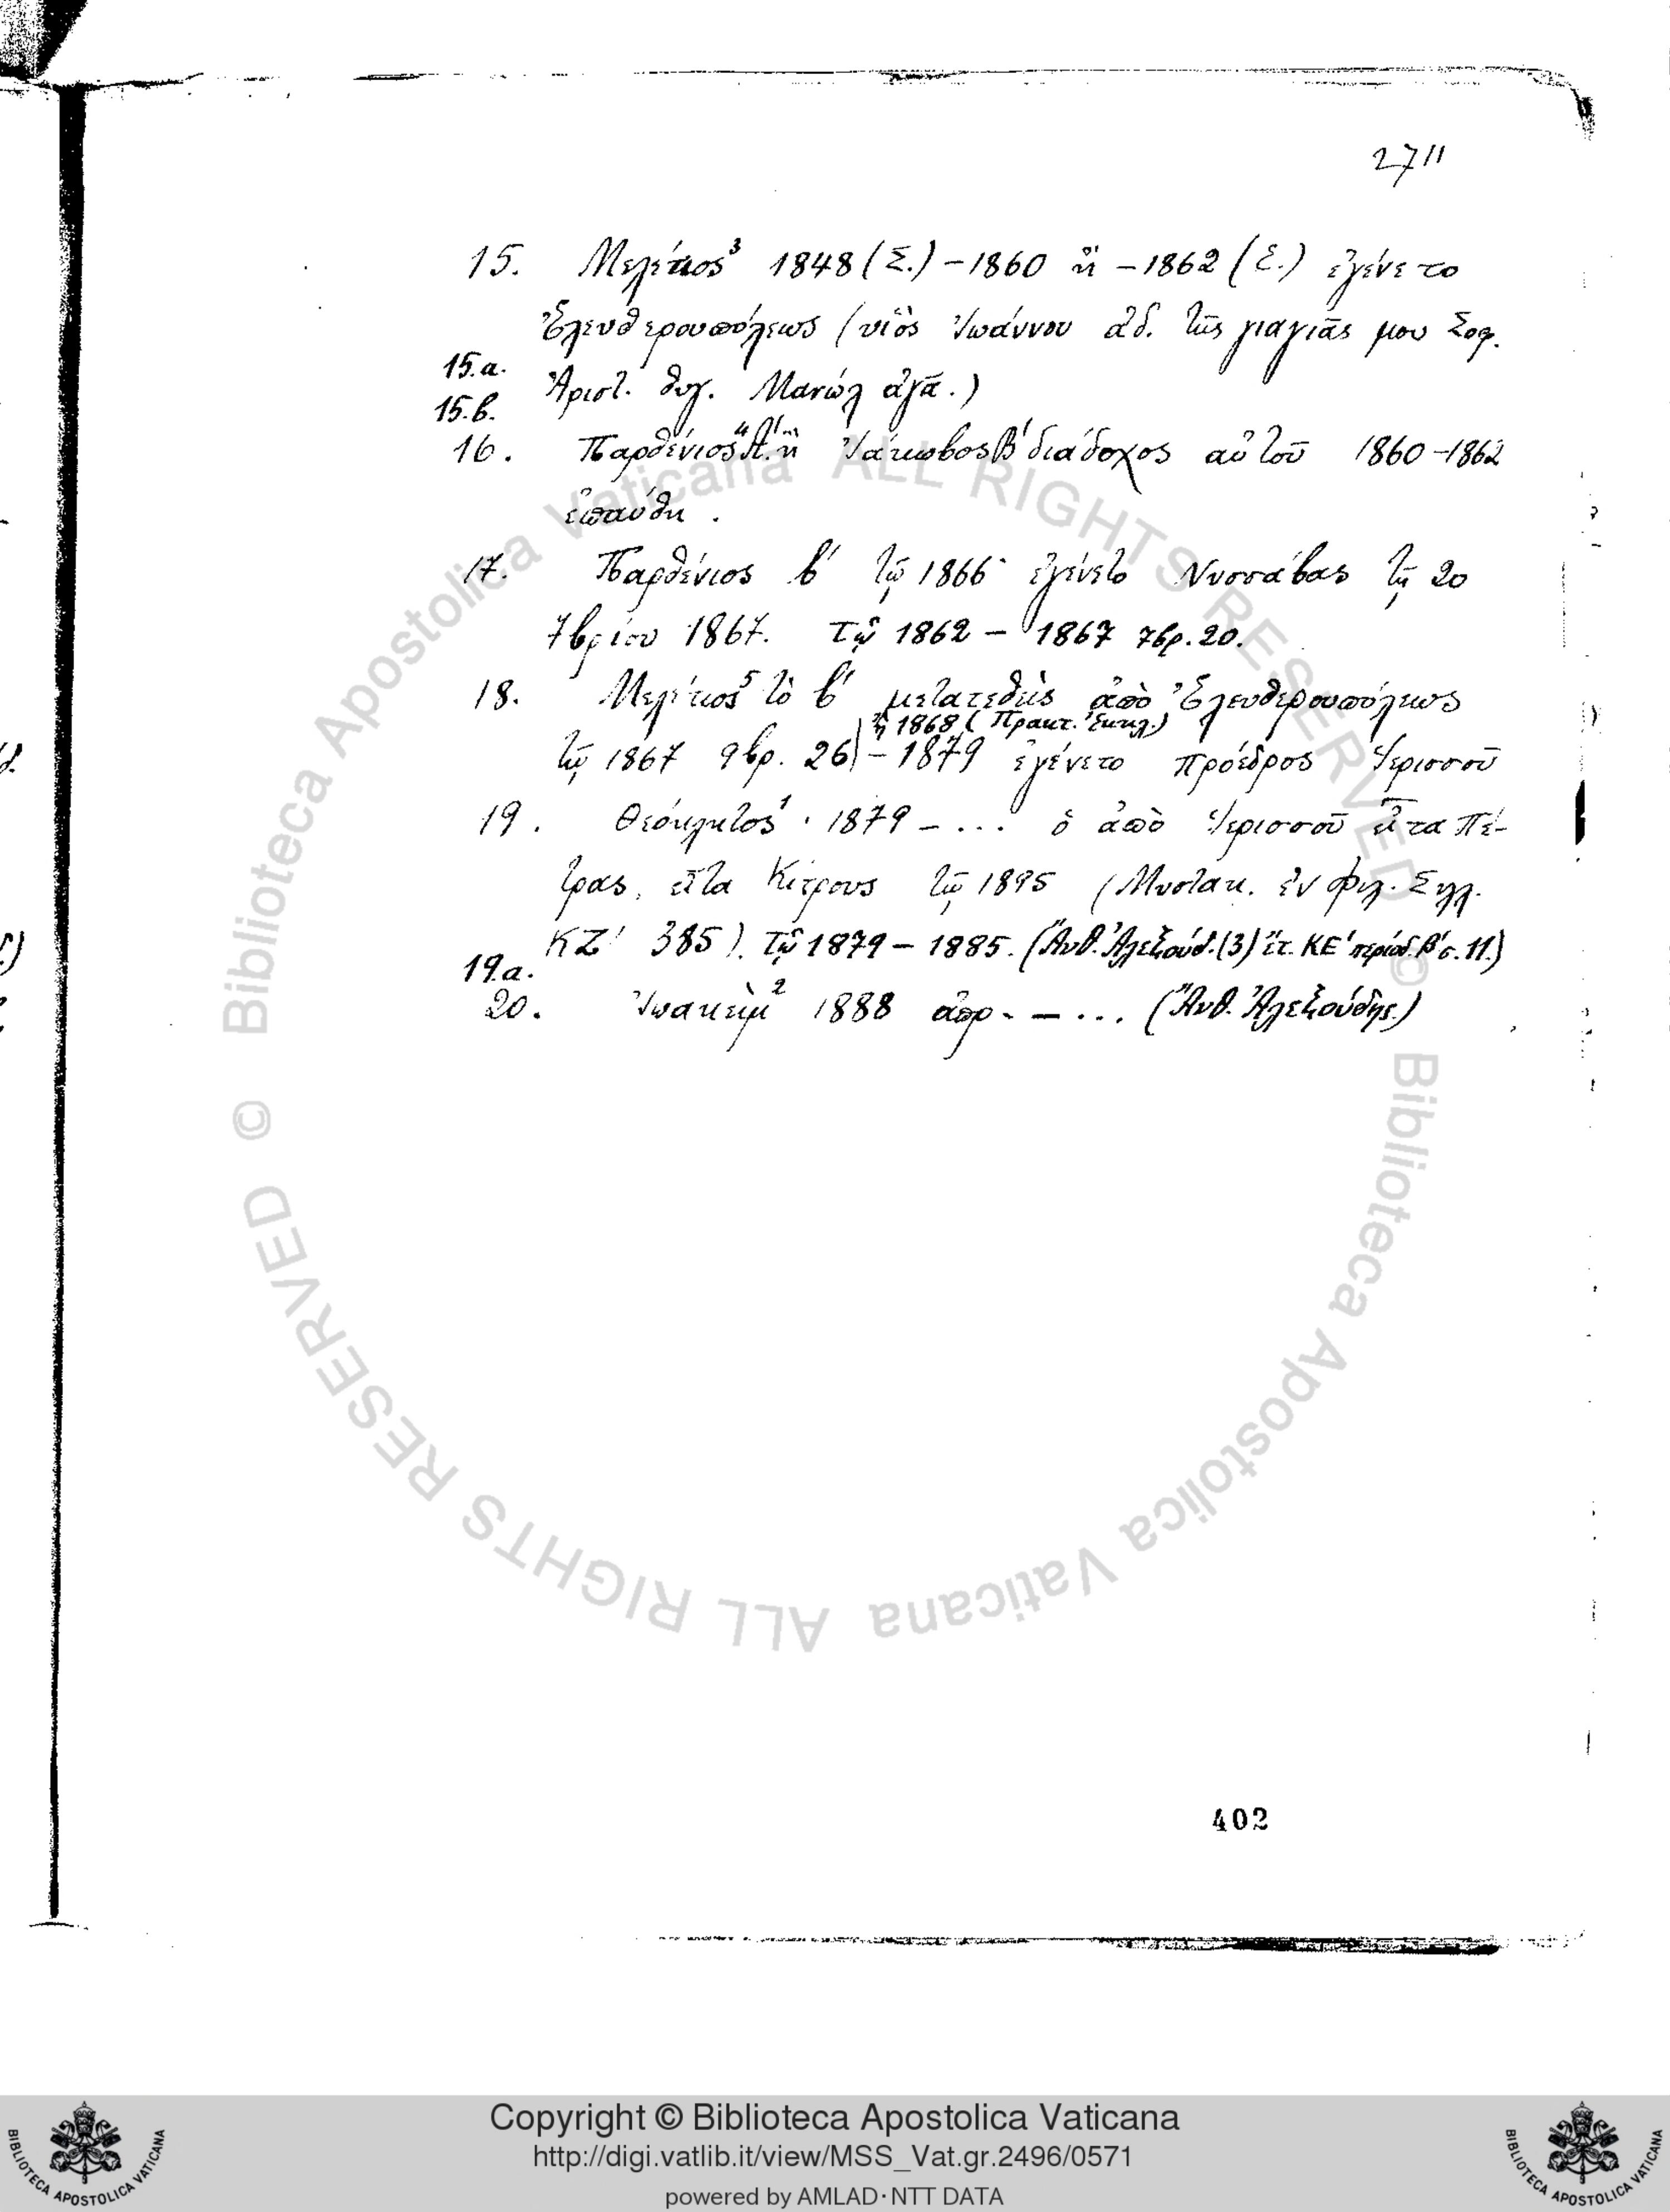 2711
15. Μελέτιος³ 1848 (Σ.) – 1860 ἢ – 1862 (Σ.) ἐγένετο
Ἐλευθερουπόλεως (υἱὸς Ἰωάννου ἀδ. τῆς γιαγιᾶς μου Σοφ.
15.α. Ἀριστ. θυγ. Μανώλ ἀγᾶ.)
15.β.
16. Παρθένιος⁴ Α΄. ἢ Ἰάκωβος Β΄ διάδοχος αὐτοῦ 1860–1862
ἐπαύθη.
17. Παρθένιος β΄ τῷ 1866 ἐγένετο Νυσσάβας τῇ 20
7βρίου 1867. Τῷ 1862 – 1867 7βρ. 20.
18. Μελέτιος⁵ τὸ β΄ μετατεθεὶς ἀπὸ Ἐλευθερουπόλεως
ἢ 1868 (Πρακτ. Ἐκκλ.)
τῷ 1867 9βρ. 26 – 1879 ἐγένετο πρόεδρος Ἱερισσοῦ
19. Θεόκλητος¹ · 1879 – ... ὁ ἀπὸ Ἱερισσοῦ εἶτα Πέ-
τρας, εἶτα Κίτρους τῷ 1895 (Μυστακ. ἐν Φιλ. Συλλ.
ΚΖ΄ 385). Τῷ 1879 – 1885. (Ἄνθ. Ἀλεξούδ. (3) ἔτ. ΚΕ΄ περίοδ. Β΄ σ. 11.)
19.α.
20. Ἰωακεὶμ² 1888 ἀπρ. – ... (Ἄνθ. Ἀλεξούδης.)
402
© Biblioteca Apostolica Vaticana ALL RIGHTS RESERVED © Biblioteca Apostolica Vaticana ALL RIGHTS RESERVED
Copyright © Biblioteca Apostolica Vaticana
http://digi.vatlib.it/view/MSS_Vat.gr.2496/0571
powered by AMLAD·NTT DATA
BIBLIOTECA APOSTOLICA VATICANA
BIBLIOTECA APOSTOLICA VATICANA